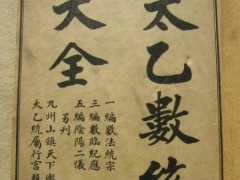 太乙數統
大全
一編數法統宗
三編數臨紀應
五編陰陽二儀
另列
九州山鎮天下輿
太乙統屬行宮